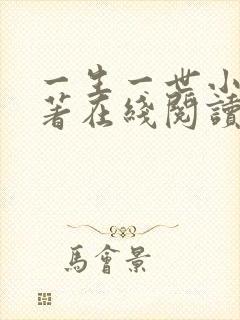 一生一世小
著在綫閱讀
馬會景